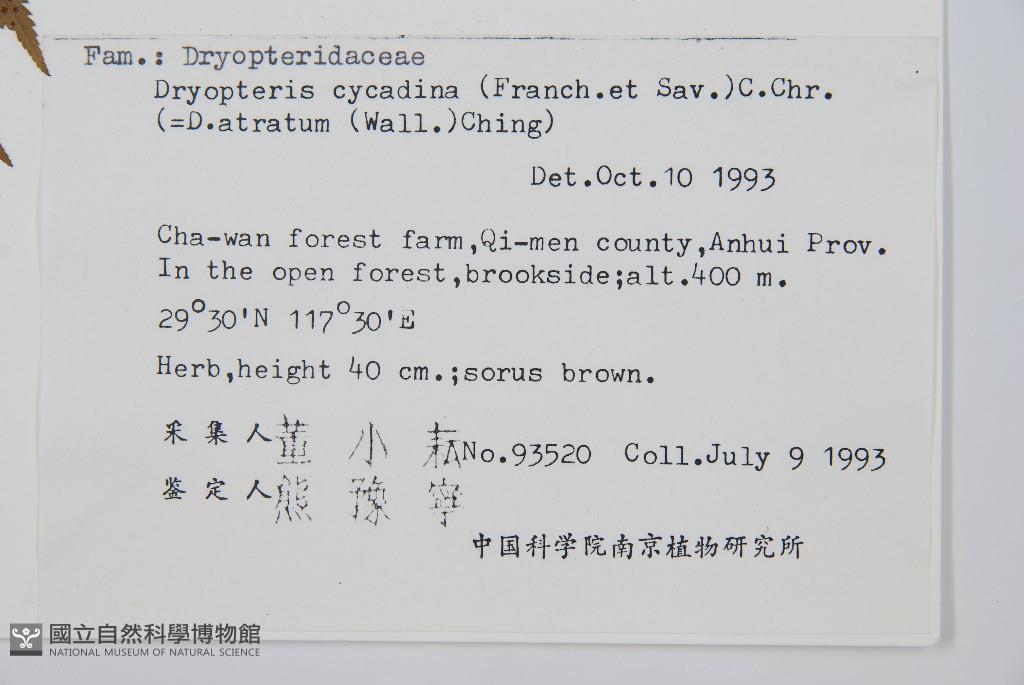 Fam.: Dryopteridaceae
Dryopteris cycadina (Franch.et Sav.)C.Chr.
(=D.atratum (Wall.)Ching)
Det.Oct.10 1993
Cha-wan forest farm,Qi-men county,Anhui Prov.
In the open forest,brookside;alt.400 m.
29°30'N 117°30'E
Herb,height 40 cm.;sorus brown.
采集人 董小耘 No.93520 Coll.July 9 1993
鉴定人 熊豫寧
中国科学院南京植物研究所
國立自然科學博物館
NATIONAL MUSEUM OF NATURAL SCIENCE